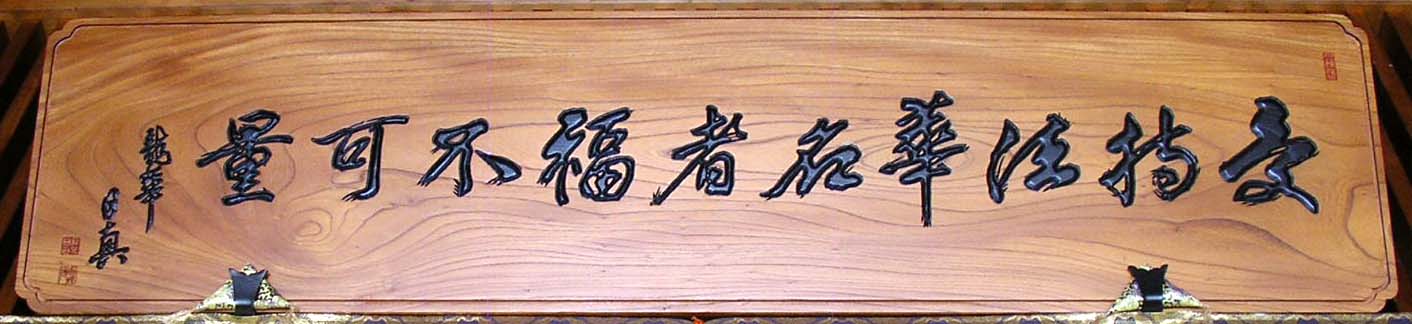 受持法華名者福不可量
龍華
日真